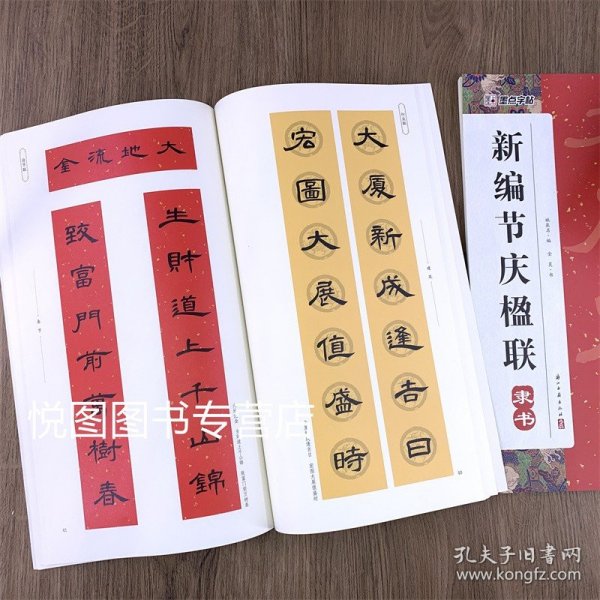 大地流金
生財道上千山錦
致富門前萬樹春
大厦新成逢吉日
宏圖大展值盛時
墨点字帖
新编节庆楹联
隶书
悦图图书专营店
孔夫子旧书网
www.kongfz.com